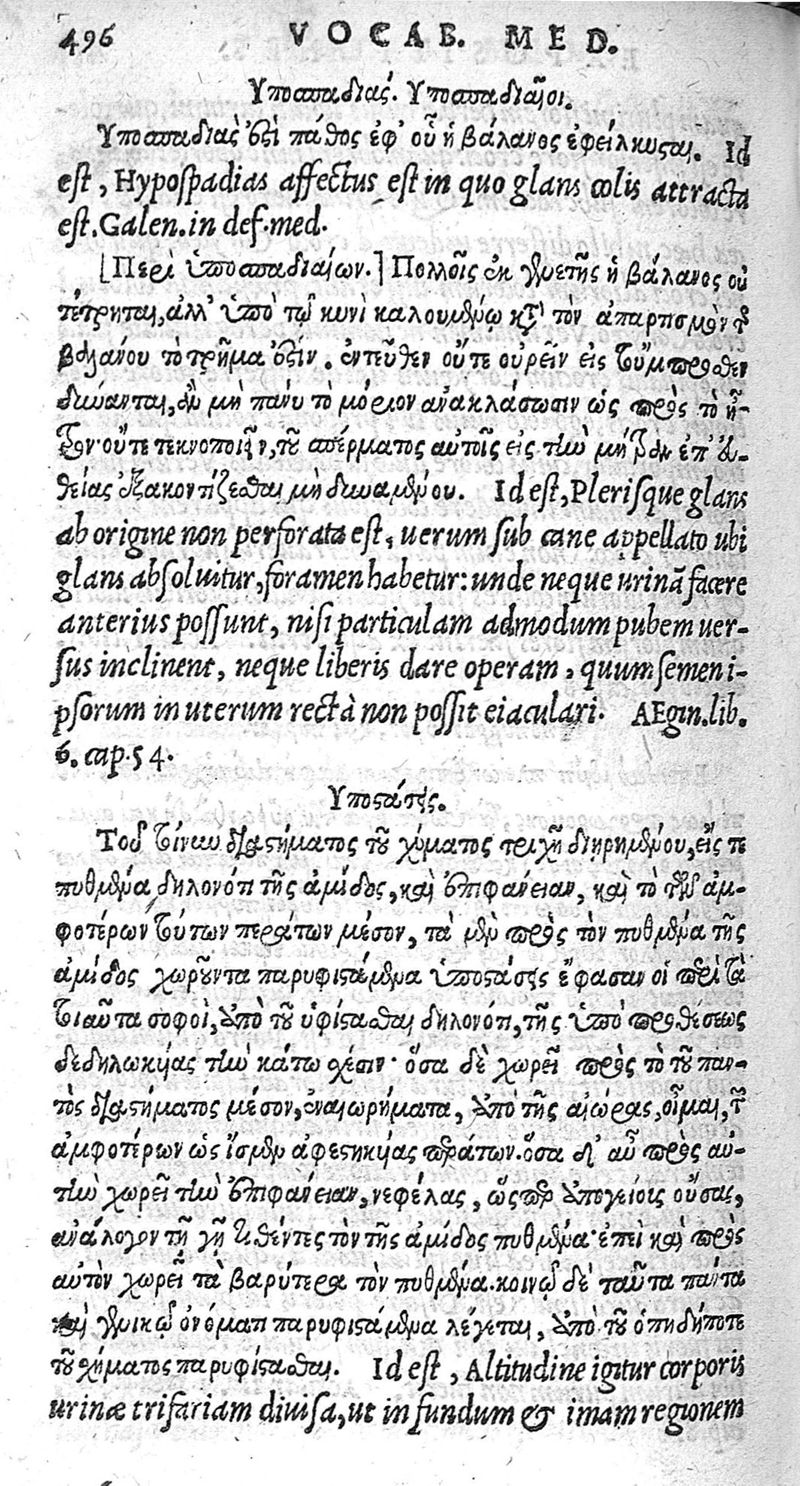 496 VOCAB. MED.
Υποσπαδίας. Υποσπαδιαῖοι.
Υποσπαδιὰς ἐςὶ πάθος ἐφ' οὗ ἡ βάλανος ἐφείλκυςαι. Id
est, Hypospadias affectus est in quo glans colis attracta
est. Galen. in def. med.
[Περὶ ὑποσπαδιαίων.] Πολλοῖς ἐκ γενετῆς ἡ βάλανος οὐ
τέτρηται, ἀλλ' ὑπὸ τῷ κυνὶ καλουμένῳ κατὰ τὸν ἀπαρτισμὸν τῆς
βαλάνου τὸ τρῆμα ἐςίν. ἐντεῦθεν οὔτε οὐρεῖν εἰς τοὔμπροσθεν
δύνανται, ἂν μὴ πάνυ τὸ μόριον ἀνακλάσωσιν ὡς πρὸς τὸ ἦ-
τρον· οὔτε τεκνοποιεῖν, τοῦ σπέρματος αὐτοῖς εἰς τὴν μήτραν ἐπ' εὐ-
θείας ἐξακοντίζεσθαι μὴ δυναμένου. Id est, Plerisque glans
ab origine non perforata est, uerum sub cane appellato ubi
glans absoluitur, foramen habetur: unde neque urinā facere
anterius possunt, nisi particulam admodum pubem uer-
sus inclinent, neque liberis dare operam, quum semen i-
psorum in uterum rectà non possit eiaculari. AEgin. lib.
6. cap. 54.
Υποςάσεις.
Τοῦ τοίνυν διαςήματος τοῦ χύματος τριχῆ διῃρημένου, εἴς τε
πυθμένα δηλονότι τῆς ἀμίδος, καὶ ἐπιφάνειαν, καὶ τὸ τῶν ἀμ-
φοτέρων τούτων περάτων μέσον, τὰ μὲν πρὸς τὸν πυθμένα τῆς
ἀμίδος χωροῦντα παρυφιςάμενα ὑποςάσεις ἔφασαν οἱ περὶ τὰ
τοιαῦτα σοφοὶ, ἀπὸ τοῦ ὑφίςασθαι δηλονότι, τῆς ὑπὸ προθέσεως
δεδηλωκυίας τὴν κάτω σχέσιν· ὅσα δὲ χωρεῖ πρὸς τὸ τοῦ παν-
τὸς διαςήματος μέσον, ἐναιωρήματα, ἀπὸ τῆς αἰώρας, οἶμαι, τῆς
ἀμφοτέρων ὡς ἴσμεν ἀφεςηκυίας περάτων. ὅσα δ' αὖ πρὸς αὐ-
τὴν χωρεῖ τὴν ἐπιφάνειαν, νεφέλας, ὥσπερ ἀπογείοις οὔσαις,
ἀνάλογον τῇ γῇ θέντες τὸν τῆς ἀμίδος πυθμένα· ἐπεὶ καὶ πρὸς
αὐτὸν χωρεῖ τὰ βαρύτερα τὸν πυθμένα. κοινῷ δὲ ταῦτα πάντα
καὶ γενικῷ ὀνόματι παρυφιςάμενα λέγεται, ἀπὸ τοῦ ὁπηδήποτε
τοῦ χήματος παρυφίςασθαι. Id est, Altitudine igitur corporis
urinæ trifariam diuisa, ut in fundum & imam regionem